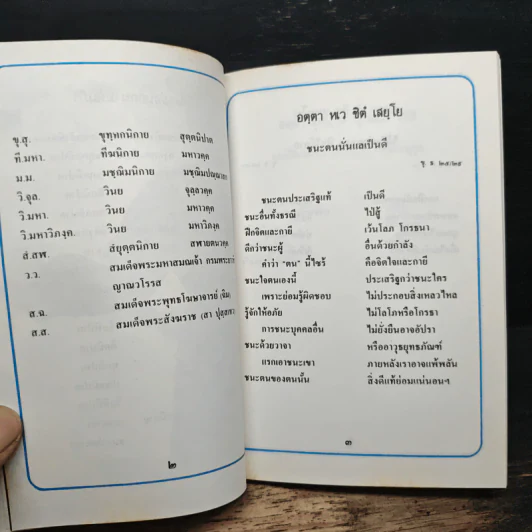 ขุ.สุ. ขุทฺทกนิกาย สุตฺตนิปาต
ที.มหา. ทีฆนิกาย มหาวคฺค
ม.ม. มชฺฌิมนิกาย
วิ.จุล. วินย จุลฺลวคฺค
วิ.มหา. วินย มหาวคฺค
วิ.มหาวิภงฺค. วินย มหาวิภงฺค
สํ.สฬ. สํยุตฺตนิกาย สฬายตนวคฺค
ว.ว. สมเด็จพระมหาสมณเจ้า
ญาณวโรรส
ส.ฉ. สมเด็จพระพุทธโฆษาจารย์ (ฉิม)
ส.ส. สมเด็จพระสังฆราช (สา ปุสฺสเทว)
๒
อตฺตา หเว ชิตํ เสยฺโย
ชนะตนนั่นแลเป็นดี
ขุ. ธ. ๒๕/๒๙
ชนะตนประเสริฐแท้ เป็นดี
ชนะอื่นทั้งธรณี ไป่สู้
ฝึกจิตและกายี เว้นโลภ โกรธนา
ดีกว่าชนะผู้ อื่นด้วยกำลัง
คำว่า "ตน" นี้ไซร้ คือจิตใจและกายี
ชนะใจตนเองนี้ ประเสริฐกว่าชนะใคร
เพราะย่อมรู้ผิดชอบ ไม่ประกอบสิ่งเหลวไหล
รู้จักให้อภัย ไม่โลภไม่โกรธหรือโกรธา
การชนะบุคคลอื่น ไม่ยั่งยืนอาจอัปรา
ชนะด้วยวาจา หรืออาวุธยุทธภัณฑ์
แรกเอาชนะเขา ภายหลังเราอาจแพ้พลัน
ชนะตนของตนนั้น สิ่งดีแท้ย่อมแน่นอนฯ
๓